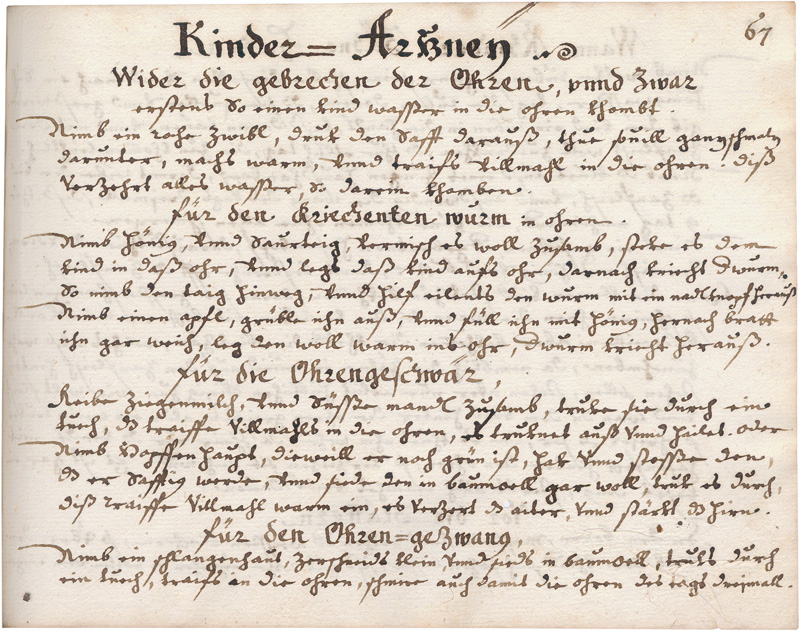 67
Kinder= Artzney
Wider die gebrechen der Ohren, vnnd Zwar
erstens So einen kind wasser in die ohren khombt.
Nimb ein rohe Zwibl, druk den Safft darauß, thue souill gannßschmaltz
darunter, machs warm, vnnd traifs villmahl in die ohren. diß
verzehrt alles wasser, So darein khomben.
für den Kriechenten wurm in ohren.
Nimb hönig, vnnd Saurteig, vermisch es woll Zusamb, steke es dem
kind in daß ohr, vnnd legs daß kind aufs ohr, darnach kriecht dwurm,
So nimb den taig hinweg, vnnd hilf eilents den wurm mit ein nadlknopf herauß
Nimb einen apfl, grüble ihn auß, vnnd füll ihn mit hönig, hernach bratt
ihn gar weich, leg den woll warm ins ohr, dwurm kriecht herauß.
für die Ohrengeschwär,
Reibe Ziegenmilch, vnnd Süsse mandl Zusamb, truke sie durch ein
tuech, dz traiffe villmahls in die ohren, es truknet auß vnnd hailet. oder
Nimb Hopffenhaupt, dieweill er noch grün ist, hak vnnd stosse den,
dz er Safftig werde, vnnd siede den in baumoell gar woll, truk es durch,
diß traiffe villmahl warm ein, es verzert dz aiter, vnnd stärkt dz hirn.
für den Ohren=geZwang,
Nimb ein schlangenhaut, Zerschneids klein vnnd sieds in baumoell, truks durch
ein tuech, traifs an die ohren, schmire auch damit die ohren des tags dreymall.